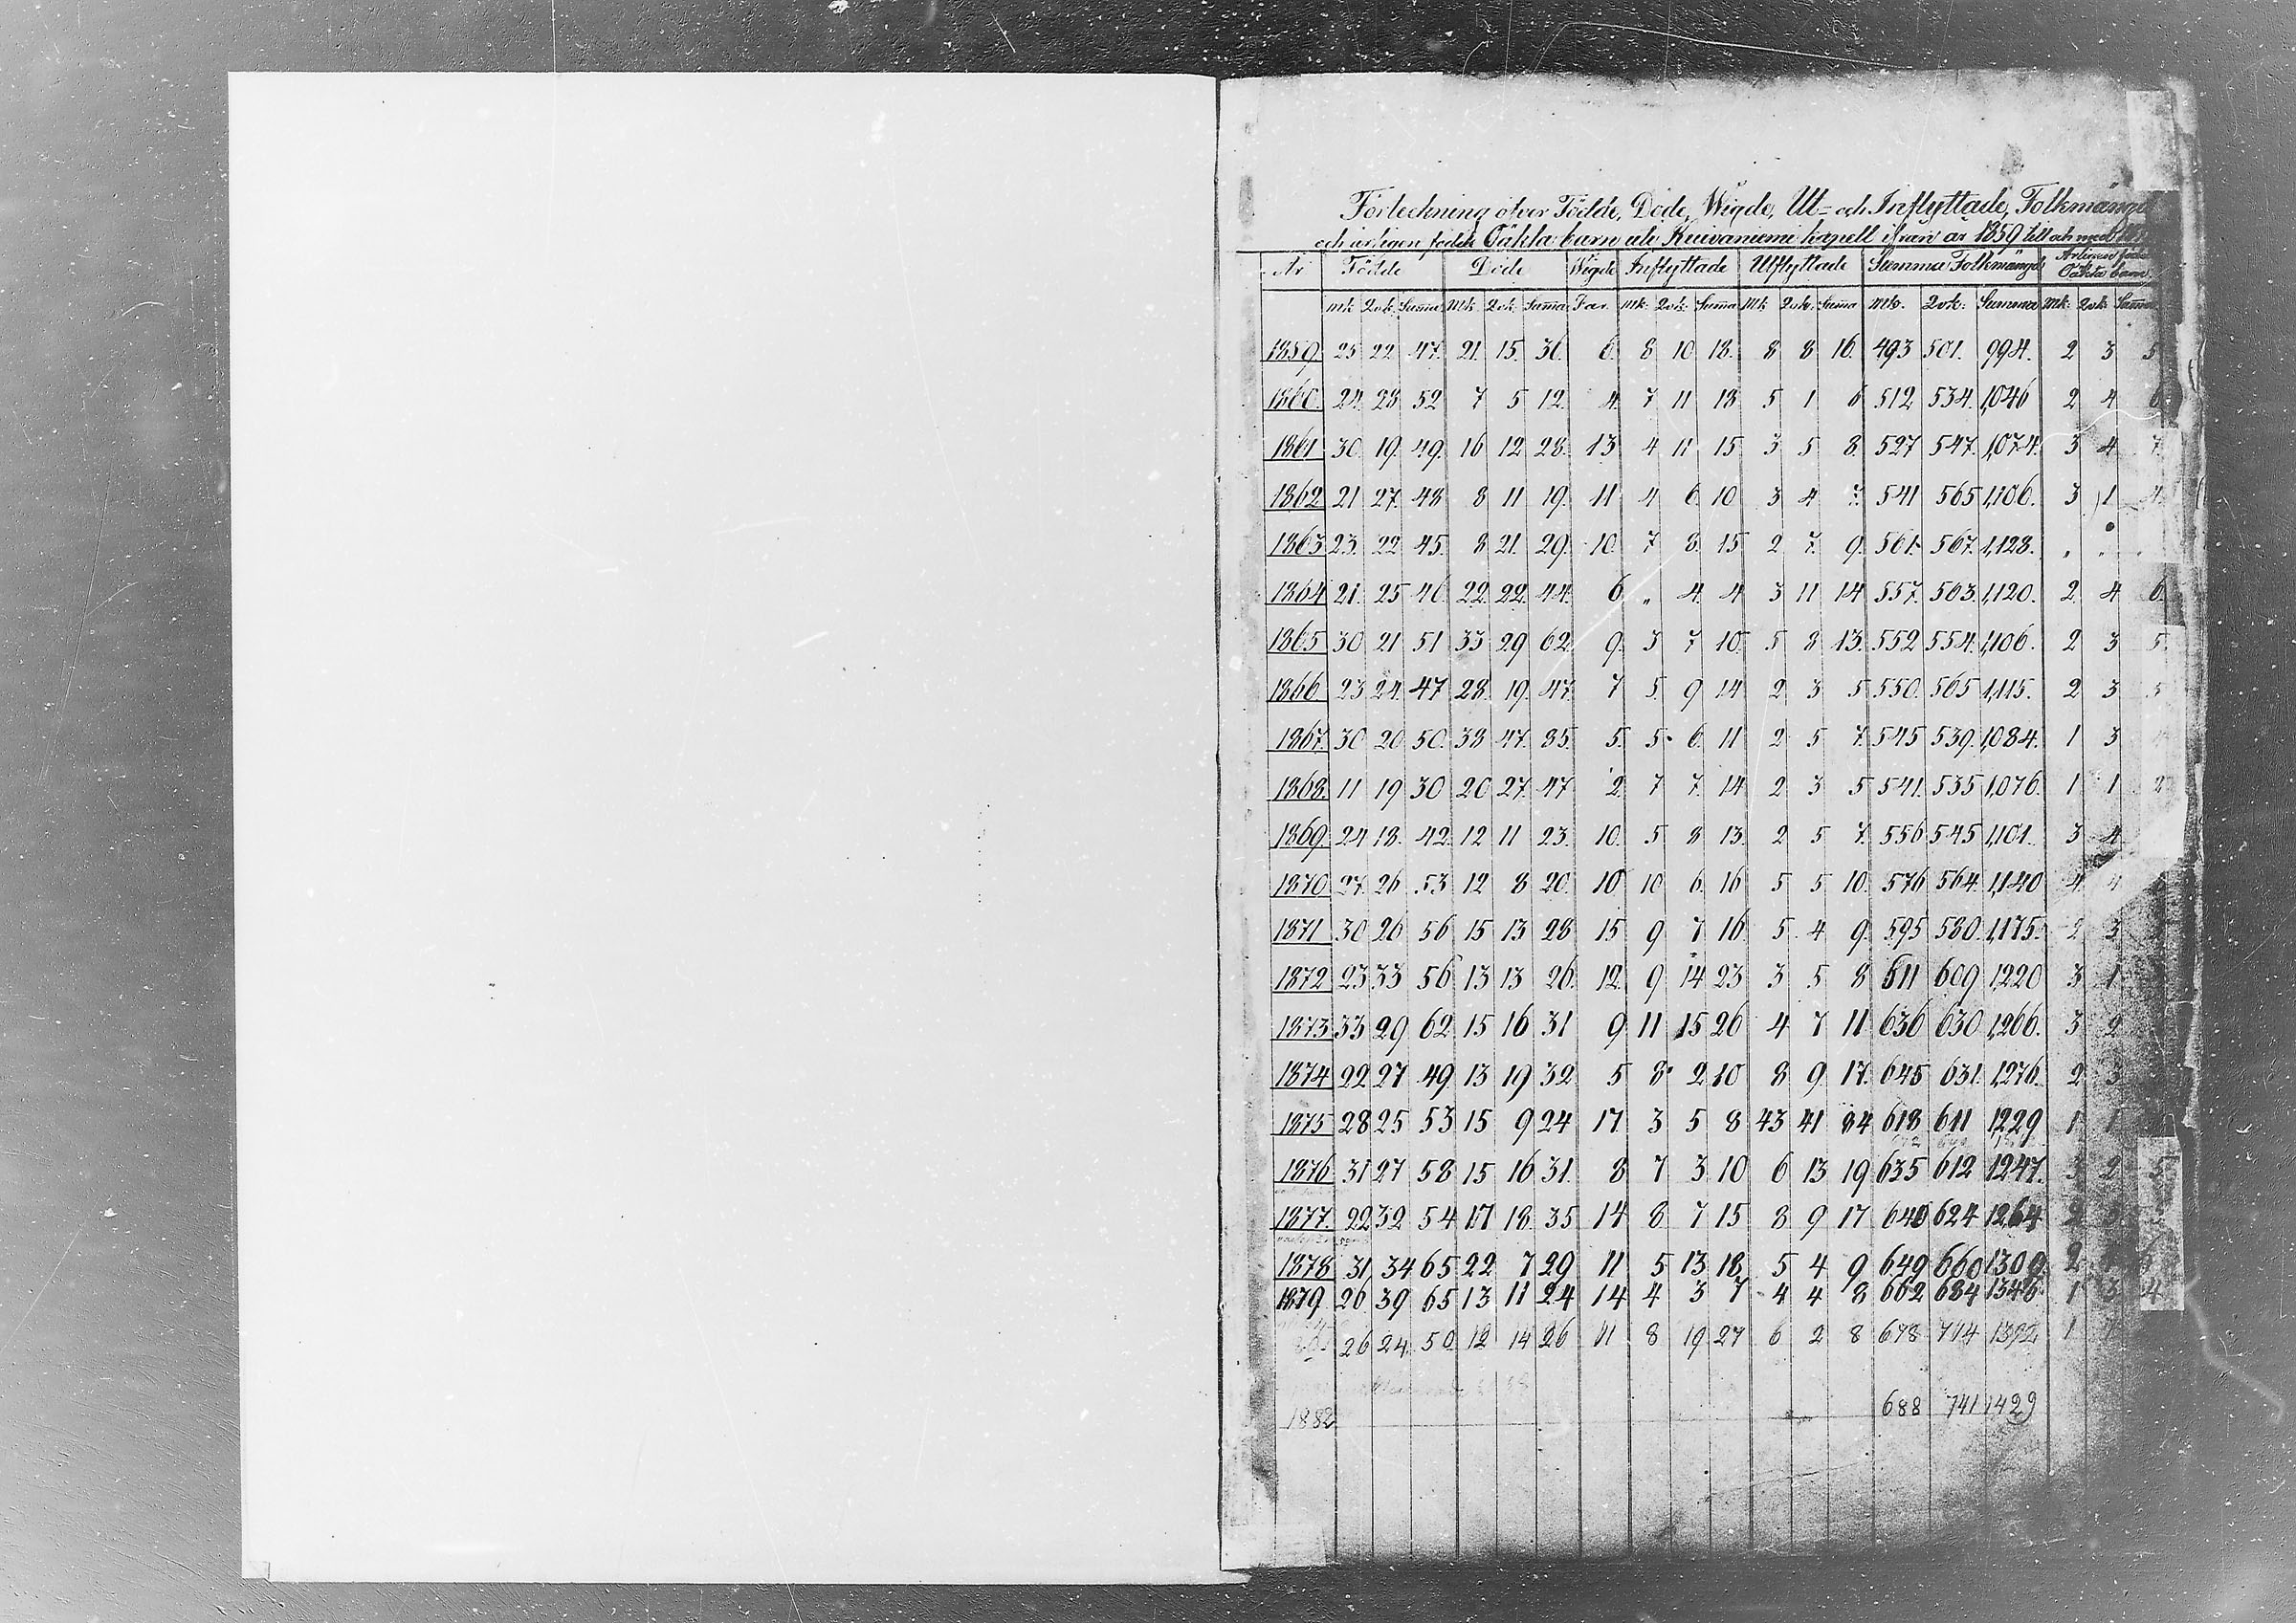 Förteckning öfver Födde, Döde, Wigde, Ut- och Inflyttade, Folkmängd
och årligen födde Oäkta barn uti Kuivaniemi kapell ifrån år 1859 till och med
År Födde Döde Wigde Inflyttade Utflyttade Summa Folkmängd Årligen födde Oäkta barn
Mk. Qvk. Summa Mk. Qvk. Summa Par. Mk. Qvk. Summa Mk. Qvk. Summa Mk. Qvk. Summa Mk. Qvk. Summa
1859. 25 22 47. 21. 15. 36. 6. 8 10 18. 8 8 16. 493 501. 994. 2 3 5
1860. 24. 28 52 7 5 12. 4. 7 11 18 5 1 6 512 534. 1,046 2 4 6
1861 30. 19. 49. 16 12 28. 13 4 11 15 3 5 8 527 547. 1,074. 3 4 7.
1862 21 27. 48 8 11 19. 11 4 6 10 3 4 7. 541 565 1,106. 3 1 4.
1863 23. 22 45. 8 21. 29. 10. 7 8. 15 2 7. 9. 561. 567. 1,128. „ „
1864 21. 25 46. 22. 22. 44. 6 „ 4. 4 3 11 14 557. 563. 1,120. 2. 4 6.
1865 30 21 51 33 29 62 9. 3 7 10. 5 8 13. 552 554. 1,106. 2 3 5.
1866 23 24. 47 28. 19. 47. 7 5. 9 14 2 3 5 550. 565 1,115. 2 3 5
1867. 30 20 50. 38 47. 85. 5. 5. 6. 11 2 5 7. 545 539. 1,084. 1 3 4
1868. 11 19 30 20 27. 47 2. 7 7. 14 2 3 5 541. 535 1,076. 1 1 2
1869. 24 18. 42. 12 11 23. 10. 5 8 13. 2 5 7. 556 545 1,101. 3 4
1870 27. 26 53 12 8 20. 10 10 6. 16 5 5 10. 576 564. 1,140 4. 4
1871 30 26 56 15 13 28 15 9 7 16 5 4 9. 595 580. 1,175. 2. 3
1872 23 33 56 13 13 26. 12. 9 14 23 3 5 8 611 609 1,220 3 1
1873 33 29 62 15 16 31 9 11 15 26 4 7 11 636 630 1,266. 3 2
1874 22 27 49 13 19 32 5 8 2 10 8 9 17. 645 631. 1,276. 2 3
1875 28 25 53 15 9 24 17. 3 5 8 43 41 84 618 611 1229 1 1
1876 31 27 58 15 16 31. 8 7 3 10 6 13 19 635 612 1247. 3 2 5
1877. 22 32 54 17 18 35 14 8 7 15 8 9 17 640 624 1264 2
1878 31 34 65 22 7 29 11 5 13 18 5 4 9 649 660 1309 2 6
1879 26 39 65 13 11 24 14 4 3 7 4 4 8 662 684 1346 1 3 4
26 24 50 12 14 26 11 8 19 27 6 2 8 678 714 1392 1
1882 688 741 1429